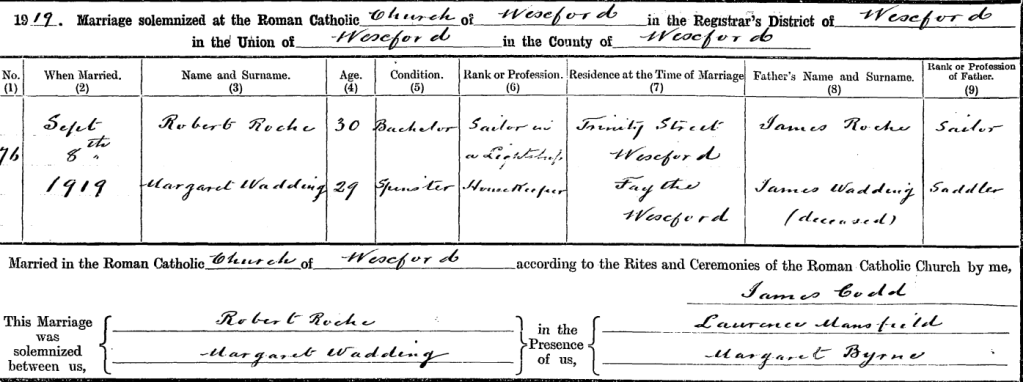 1919. Marriage solemnized at the Roman Catholic Church of Wexford in the Registrar's District of Wexford
in the Union of Wexford in the County of Wexford
No. (1) When Married. (2) Name and Surname. (3) Age. (4) Condition. (5) Rank or Profession. (6) Residence at the Time of Marriage (7) Father's Name and Surname. (8) Rank or Profession of Father. (9)
Sept Robert Roche 30 Bachelor Sailor in Trinity Street James Roche Sailor
76 8th a Lightship Wexford
1919 Margaret Wadding 29 Spinster HouseKeeper Faythe James Wadding Saddler
Wexford (deceased)
Married in the Roman Catholic Church of Wexford according to the Rites and Ceremonies of the Roman Catholic Church by me,
James Codd
This Marriage was solemnized between us, Robert Roche in the Presence of us, Lawrence Mansfield
Margaret Wadding Margaret Byrne